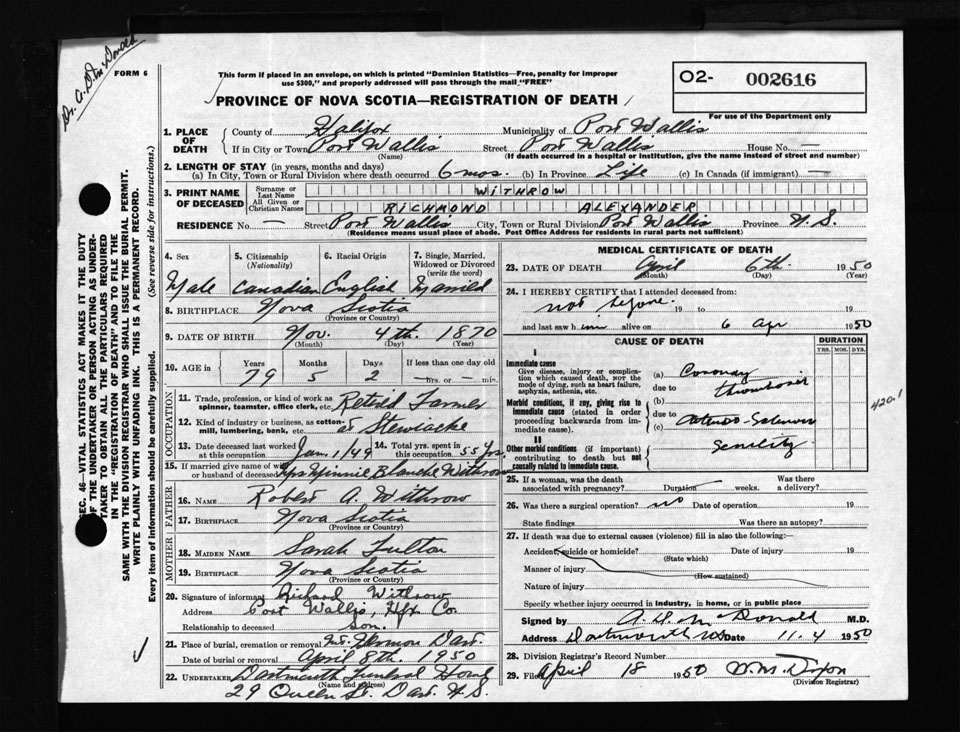 Dr. A. D. McDonald
FORM 6
This form if placed in an envelope, on which is printed "Dominion Statistics—Free, penalty for improper
use $300," and properly addressed will pass through the mail "FREE"
O2- 002616
For use of the Department only
PROVINCE OF NOVA SCOTIA—REGISTRATION OF DEATH
1. PLACE OF DEATH County of Halifax Municipality of Port Wallis
If in City or Town Port Wallis (Name) Street Port Wallis House No. —
(If death occurred in a hospital or institution, give the name instead of street and number)
2. LENGTH OF STAY (in years, months and days)
(a) In City, Town or Rural Division where death occurred 6 mos. (b) In Province Life (c) In Canada (if immigrant) —
3. PRINT NAME OF DECEASED Surname or Last Name WITHROW
All Given or Christian Names RICHMOND ALEXANDER
RESIDENCE No. — Street Port Wallis City, Town or Rural Division Port Wallis Province N.S.
(Residence means usual place of abode. Post Office Address for residents in rural parts not sufficient)
4. Sex Male
5. Citizenship (Nationality) Canadian
6. Racial Origin English
7. Single, Married, Widowed or Divorced (write the word) Married
8. BIRTHPLACE Nova Scotia
(Province or Country)
9. DATE OF BIRTH Nov. 4th. 1870
(Month) (Day) (Year)
10. AGE in Years Months Days If less than one day old
79 5 2 — hrs. or — min.
OCCUPATION
11. Trade, profession, or kind of work as spinner, teamster, office clerk, etc. Retired Farmer
12. Kind of industry or business, as cotton-mill, lumbering, bank, etc. at Stewiacke
13. Date deceased last worked at this occupation Jan 1/49
14. Total yrs. spent in this occupation 55 yrs.
15. If married give name of wife or husband of deceased Mrs Minnie Blanche Withrow
FATHER
16. NAME Robert A. Withrow
17. BIRTHPLACE Nova Scotia
(Province or Country)
MOTHER
18. MAIDEN NAME Sarah Fulton
19. BIRTHPLACE Nova Scotia
(Province or Country)
20. Signature of informant Richard Withrow
Address Port Wallis, Hfx Co.
Relationship to deceased Son.
21. Place of burial, cremation or removal Mt. Hermon Dart.
Date of burial or removal April 8th. 1950
22. UNDERTAKER Dartmouth Funeral Home
(Name and address)
29 Queen St. Dart. N.S.
MEDICAL CERTIFICATE OF DEATH
23. DATE OF DEATH April 6th. 1950
(Month) (Day) (Year)
24. I HEREBY CERTIFY that I attended deceased from:
not before. 19 to 19
and last saw him alive on 6 Apr 1950
CAUSE OF DEATH
DURATION
YRS. MOS. DYS.
I
Immediate cause
Give disease, injury or complication which caused death, NOT the mode of dying, such as heart failure, asphyxia, asthenia, etc.
(a) Coronary
due to thrombosis
Morbid conditions, if any, giving rise to immediate cause (stated in order proceeding backwards from immediate cause).
(b)
due to
(c) Arterio-Sclerosis
420.1
II
Other morbid conditions (if important) contributing to death but not causally related to immediate cause.
Senility
25. If a woman, was the death associated with pregnancy? Duration weeks. Was there a delivery?
26. Was there a surgical operation? no Date of operation 19
State findings Was there an autopsy?
27. If death was due to external causes (violence) fill in also the following:—
Accident, suicide or homicide? (State which) Date of injury 19
Manner of injury (How sustained)
Nature of injury
Specify whether injury occurred in industry, in home, or in public place
Signed by A. D. McDonald M.D.
Address Dartmouth NS Date 11.4 1950
28. Division Registrar's Record Number
29. Filed April 18 1950 W. M. Dixon
(Division Registrar)
SEC. 46—VITAL STATISTICS ACT MAKES IT THE DUTY
OF THE UNDERTAKER OR PERSON ACTING AS UNDER-
TAKER TO OBTAIN ALL THE PARTICULARS REQUIRED
IN THE "REGISTRATION OF DEATH" AND TO FILE THE
SAME WITH THE DIVISION REGISTRAR WHO SHALL ISSUE THE BURIAL PERMIT.
WRITE PLAINLY WITH UNFADING INK. THIS IS A PERMANENT RECORD.
Every item of information should be carefully supplied. (See reverse side for instructions.)